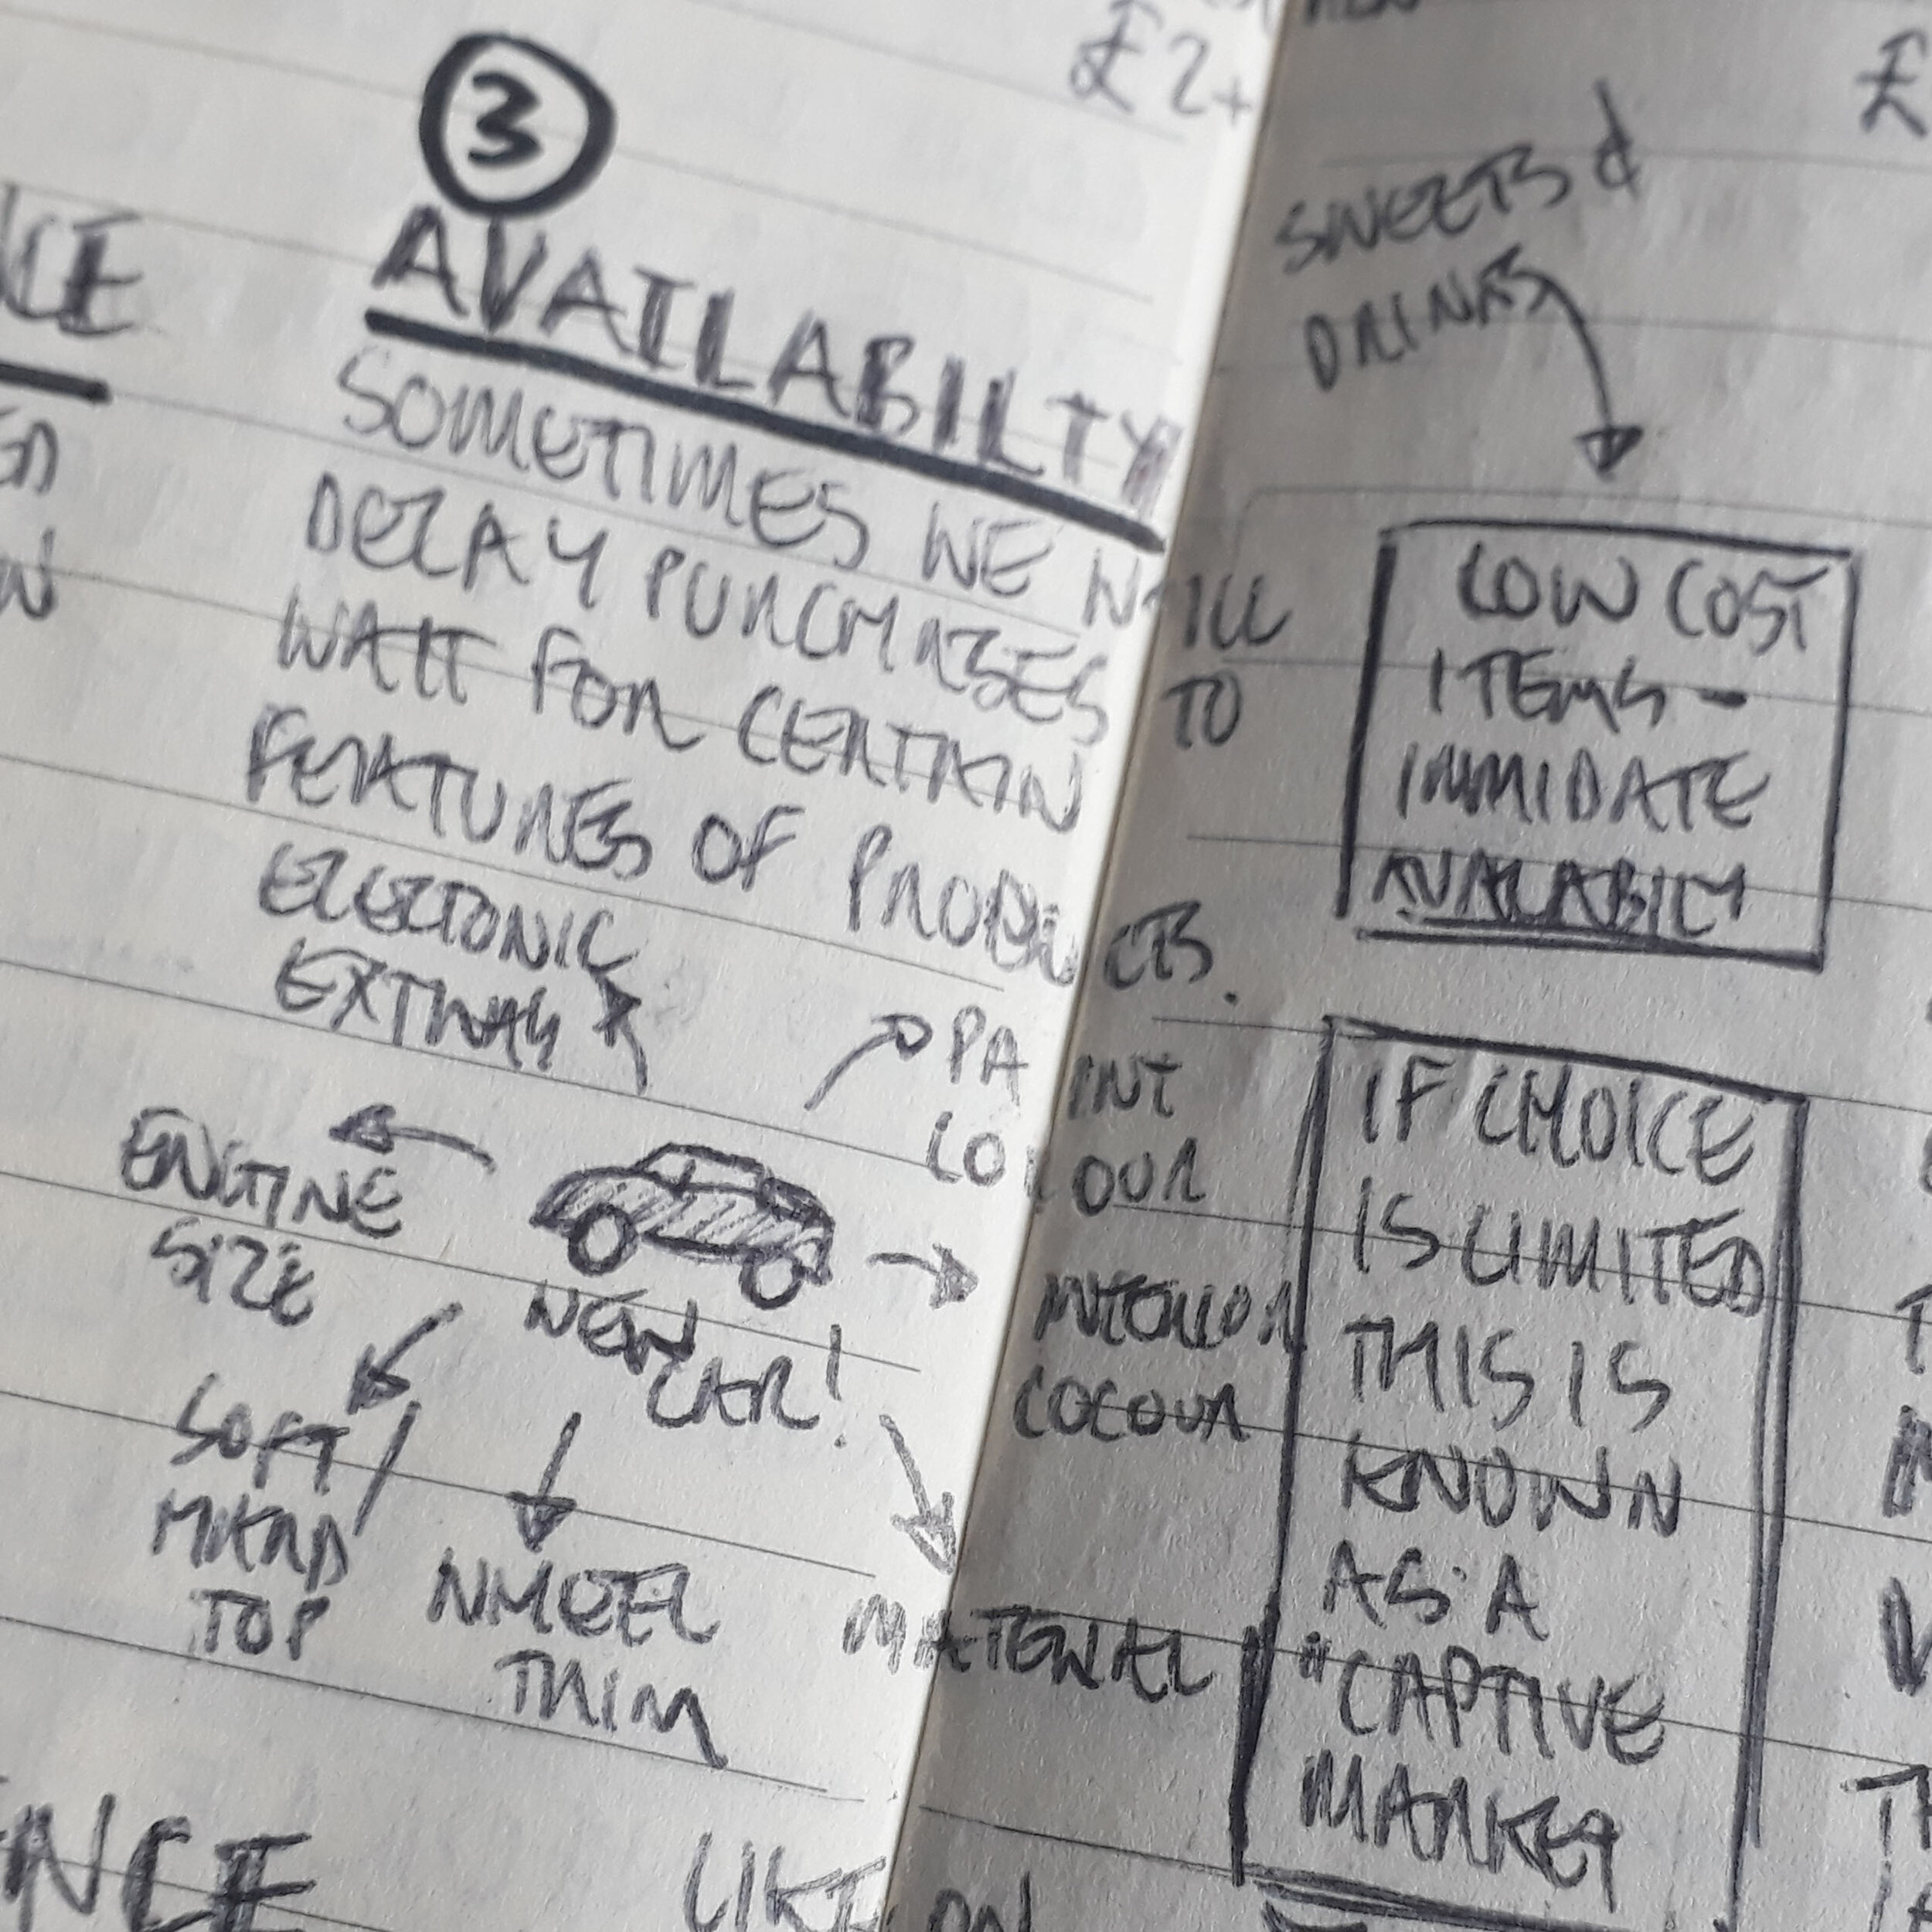 £2+
£
3
AVAILABILTY
SOMETIMES WE WILL
DELAY PURCHASES TO
WAIT FOR CERTAIN
FEATURES OF PRODUCTS.
ELECTONIC
EXTRAS
PAINT
COLOUR
ENGINE
SIZE
NEW
CAR!
INTERIOR
COLOUR
SOFT/
HARD
TOP
WHEEL
TRIM
MATERIAL
SWEETS &
DRINKS
LOW COST
ITEMS -
IMMIDATE
AVALABILY
IF CHOICE
IS LIMITED
THIS IS
KNOWN
AS A
"CAPTIVE
MARKET
LIKE